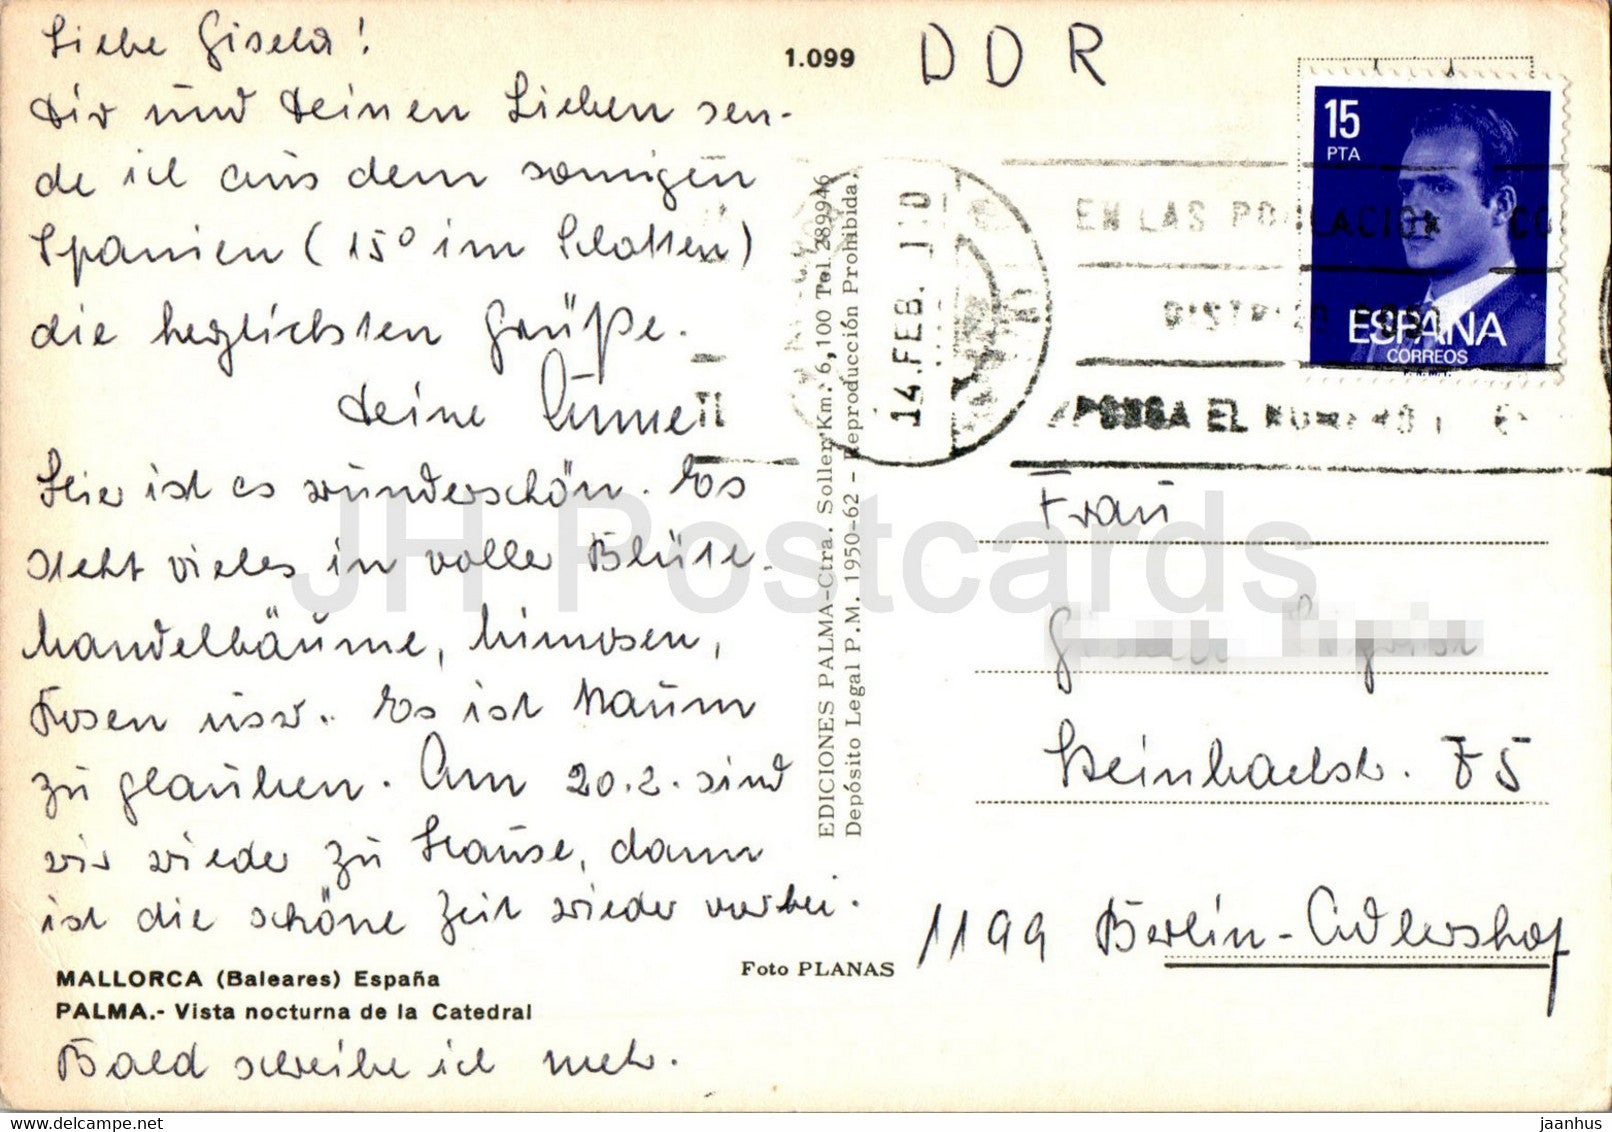 Liebe Gisela!
Dir und Deinen Lieben sen-
de ich aus dem sonnigen
Spanien (15° im Schatten)
die herzlichsten Grüße.
Deine
Hier ist es wunderschön. Es
steht vieles in voller Blüte.
Mandelbäume, Mimosen,
Rosen usw. Es ist kaum
zu glauben. Am 20.2. sind
wir wieder zu Hause, dann
ist die schöne Zeit wieder vorbei.
MALLORCA (Baleares) España
PALMA.- Vista nocturna de la Catedral
Bald schreibe ich mehr.
1.099
Foto PLANAS
EDICIONES PALMA-Ctra. Soller Km. 6,100 Tel. 289946
Depósito Legal P.M. 1950-62 - Reproducción Prohibida.
DDR
15
PTA
ESPAÑA
CORREOS
F.N.M.T.
14.FEB.
EN LAS POBLACION
PONGA EL NUMERO
Frau
Steinbachstr. 75
1199 Berlin-Adlershof
JH Postcards
jaanhus